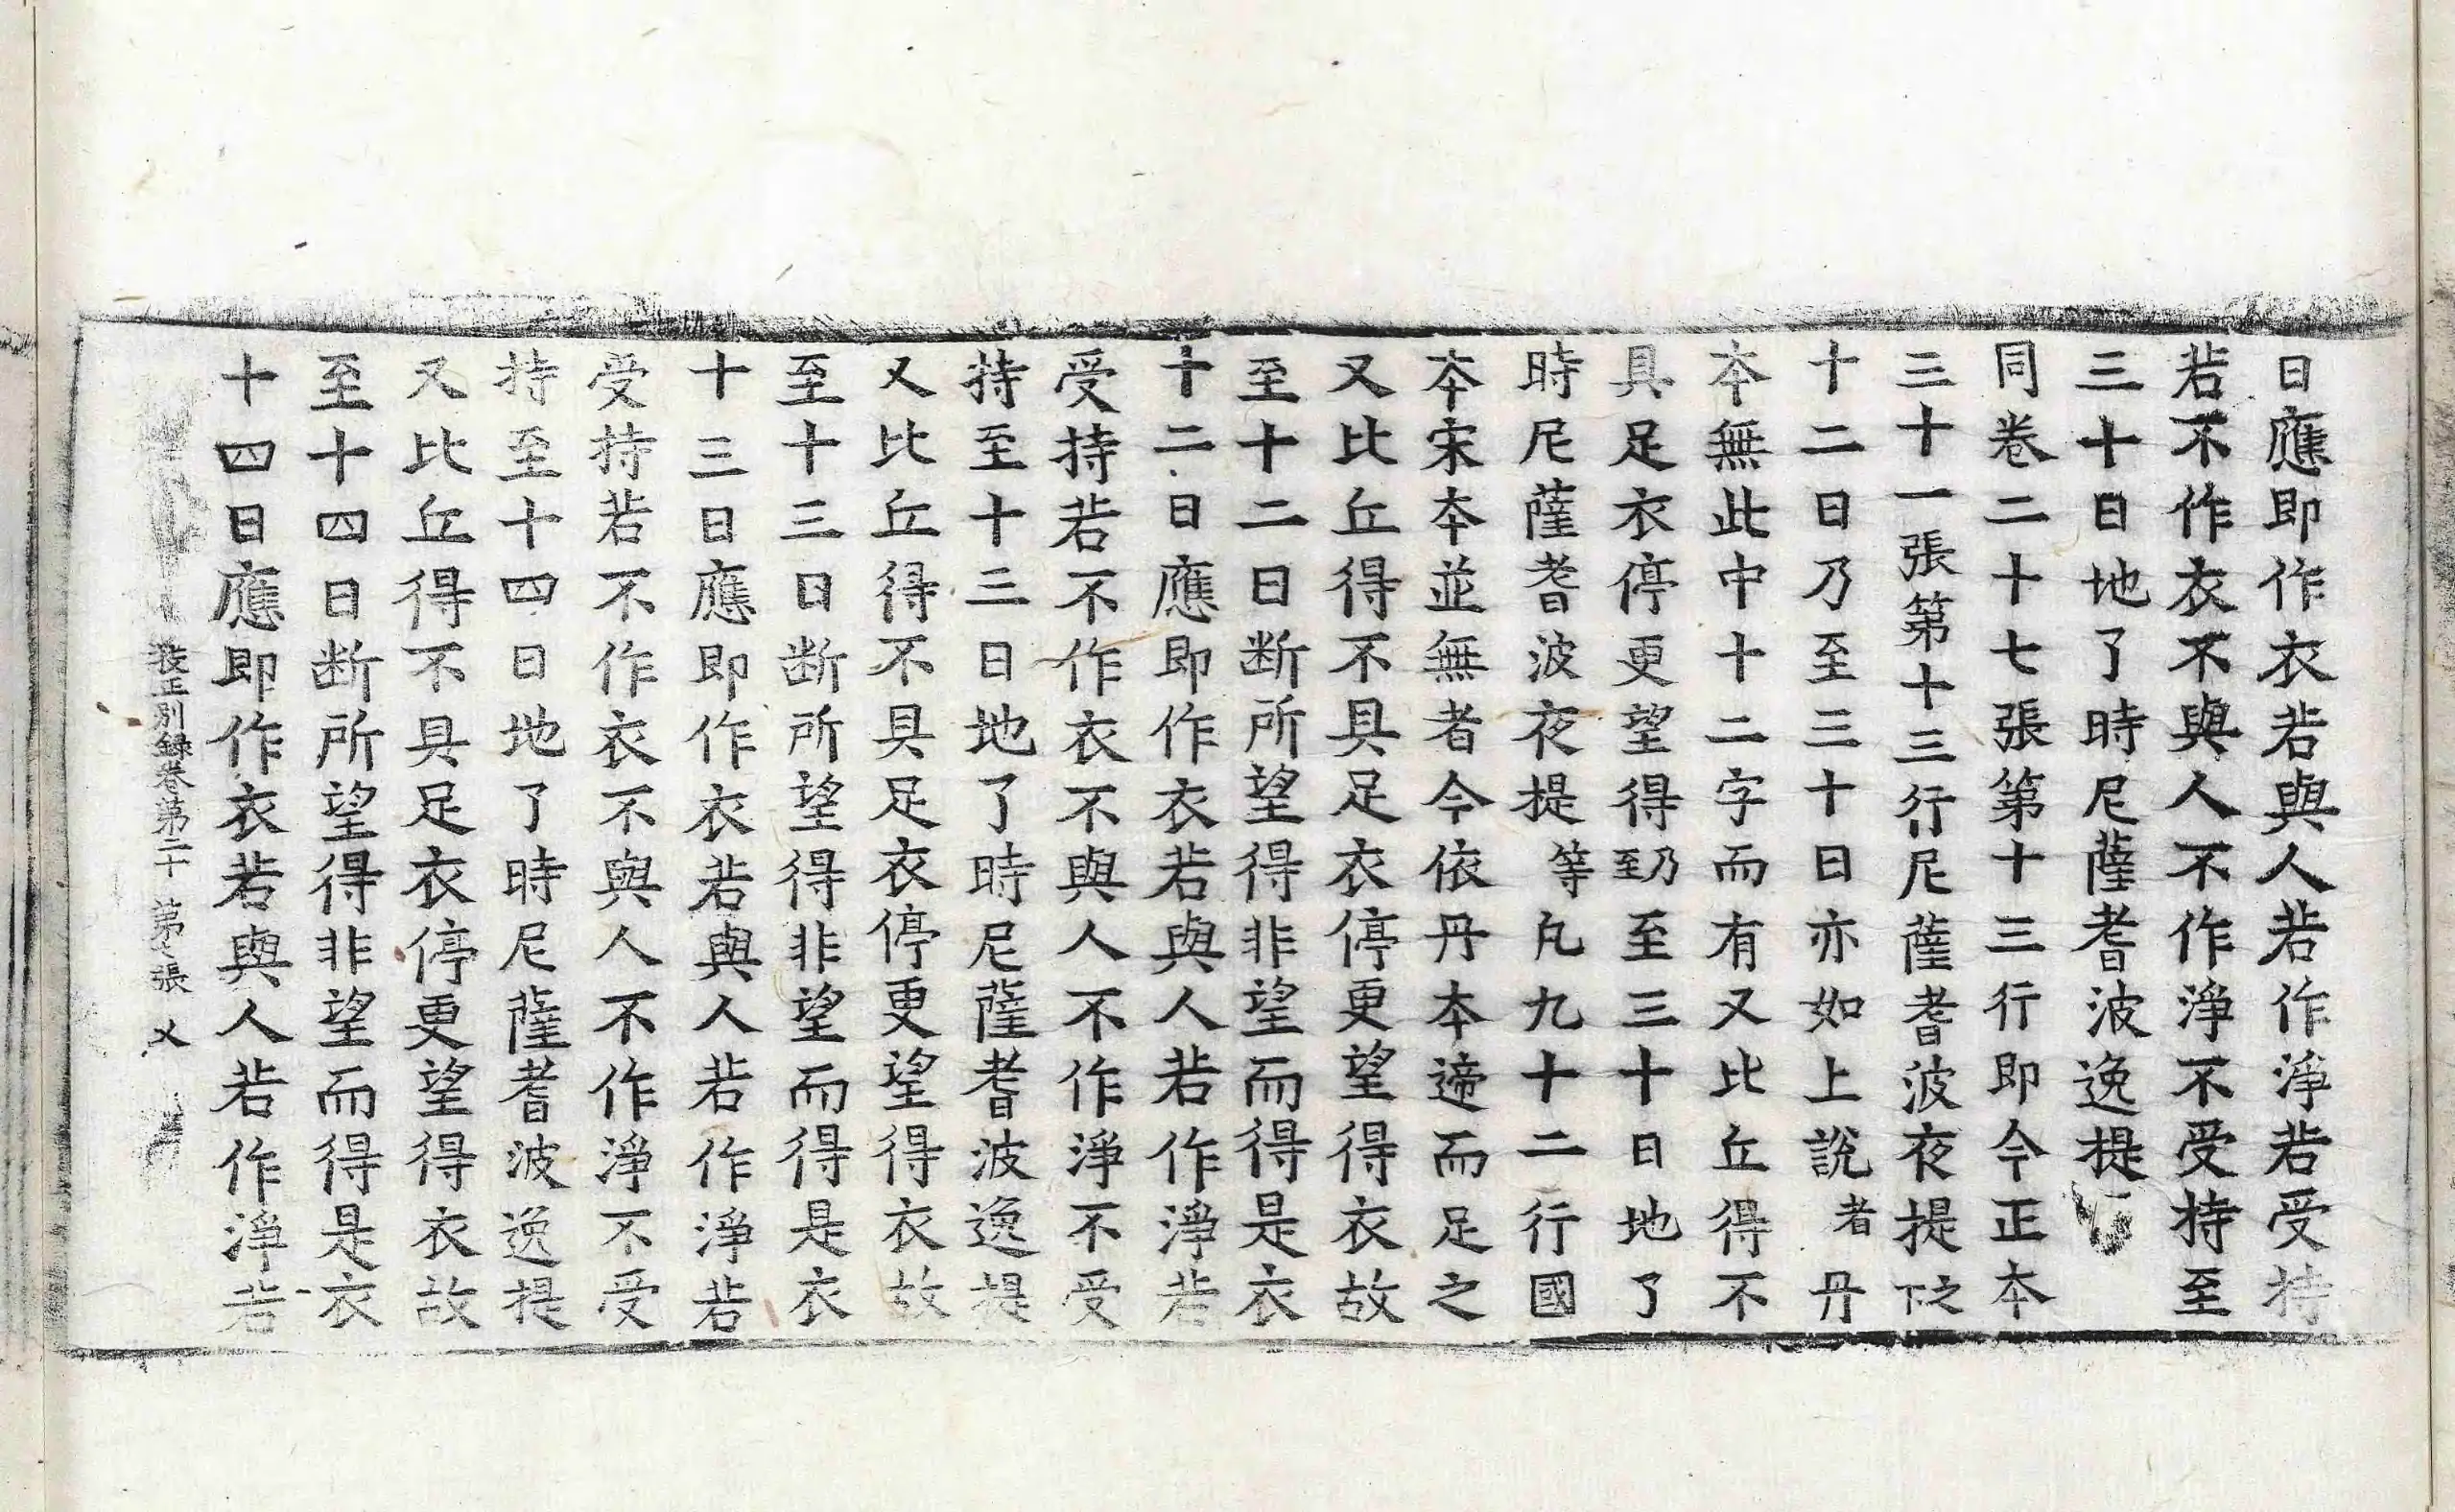 日應即作衣若與人若作淨若受持
若不作衣不與人不作淨不受持至
三十日地了時尼薩耆波逸提
同卷二十七張第十三行即今正本
三十一張第十三行尼薩耆波夜提之下
十二日乃至三十日亦如上說者丹
本無此中十二字而有又比丘得不
具足衣停更望得乃至至三十日地了
時尼薩耆波夜提等凡九十二行國
本宋本並無者今依丹本遆而足之
又比丘得不具足衣停更望得衣故
至十二日断所望得非望而得是衣
十二日應即作衣若與人若作淨若
受持若不作衣不與人不作淨不受
持至十三日地了時尼薩耆波逸提
又比丘得不具足衣停更望得衣故
至十三日断所望得非望而得是衣
十三日應即作衣若與人若作淨若
受持若不作衣不與人不作淨不受
持至十四日地了時尼薩耆波逸提
又比丘得不具足衣停更望得衣故
至十四日断所望得非望而得是衣
十四日應即作衣若與人若作淨若
校正別録卷第二十 第七張 乂